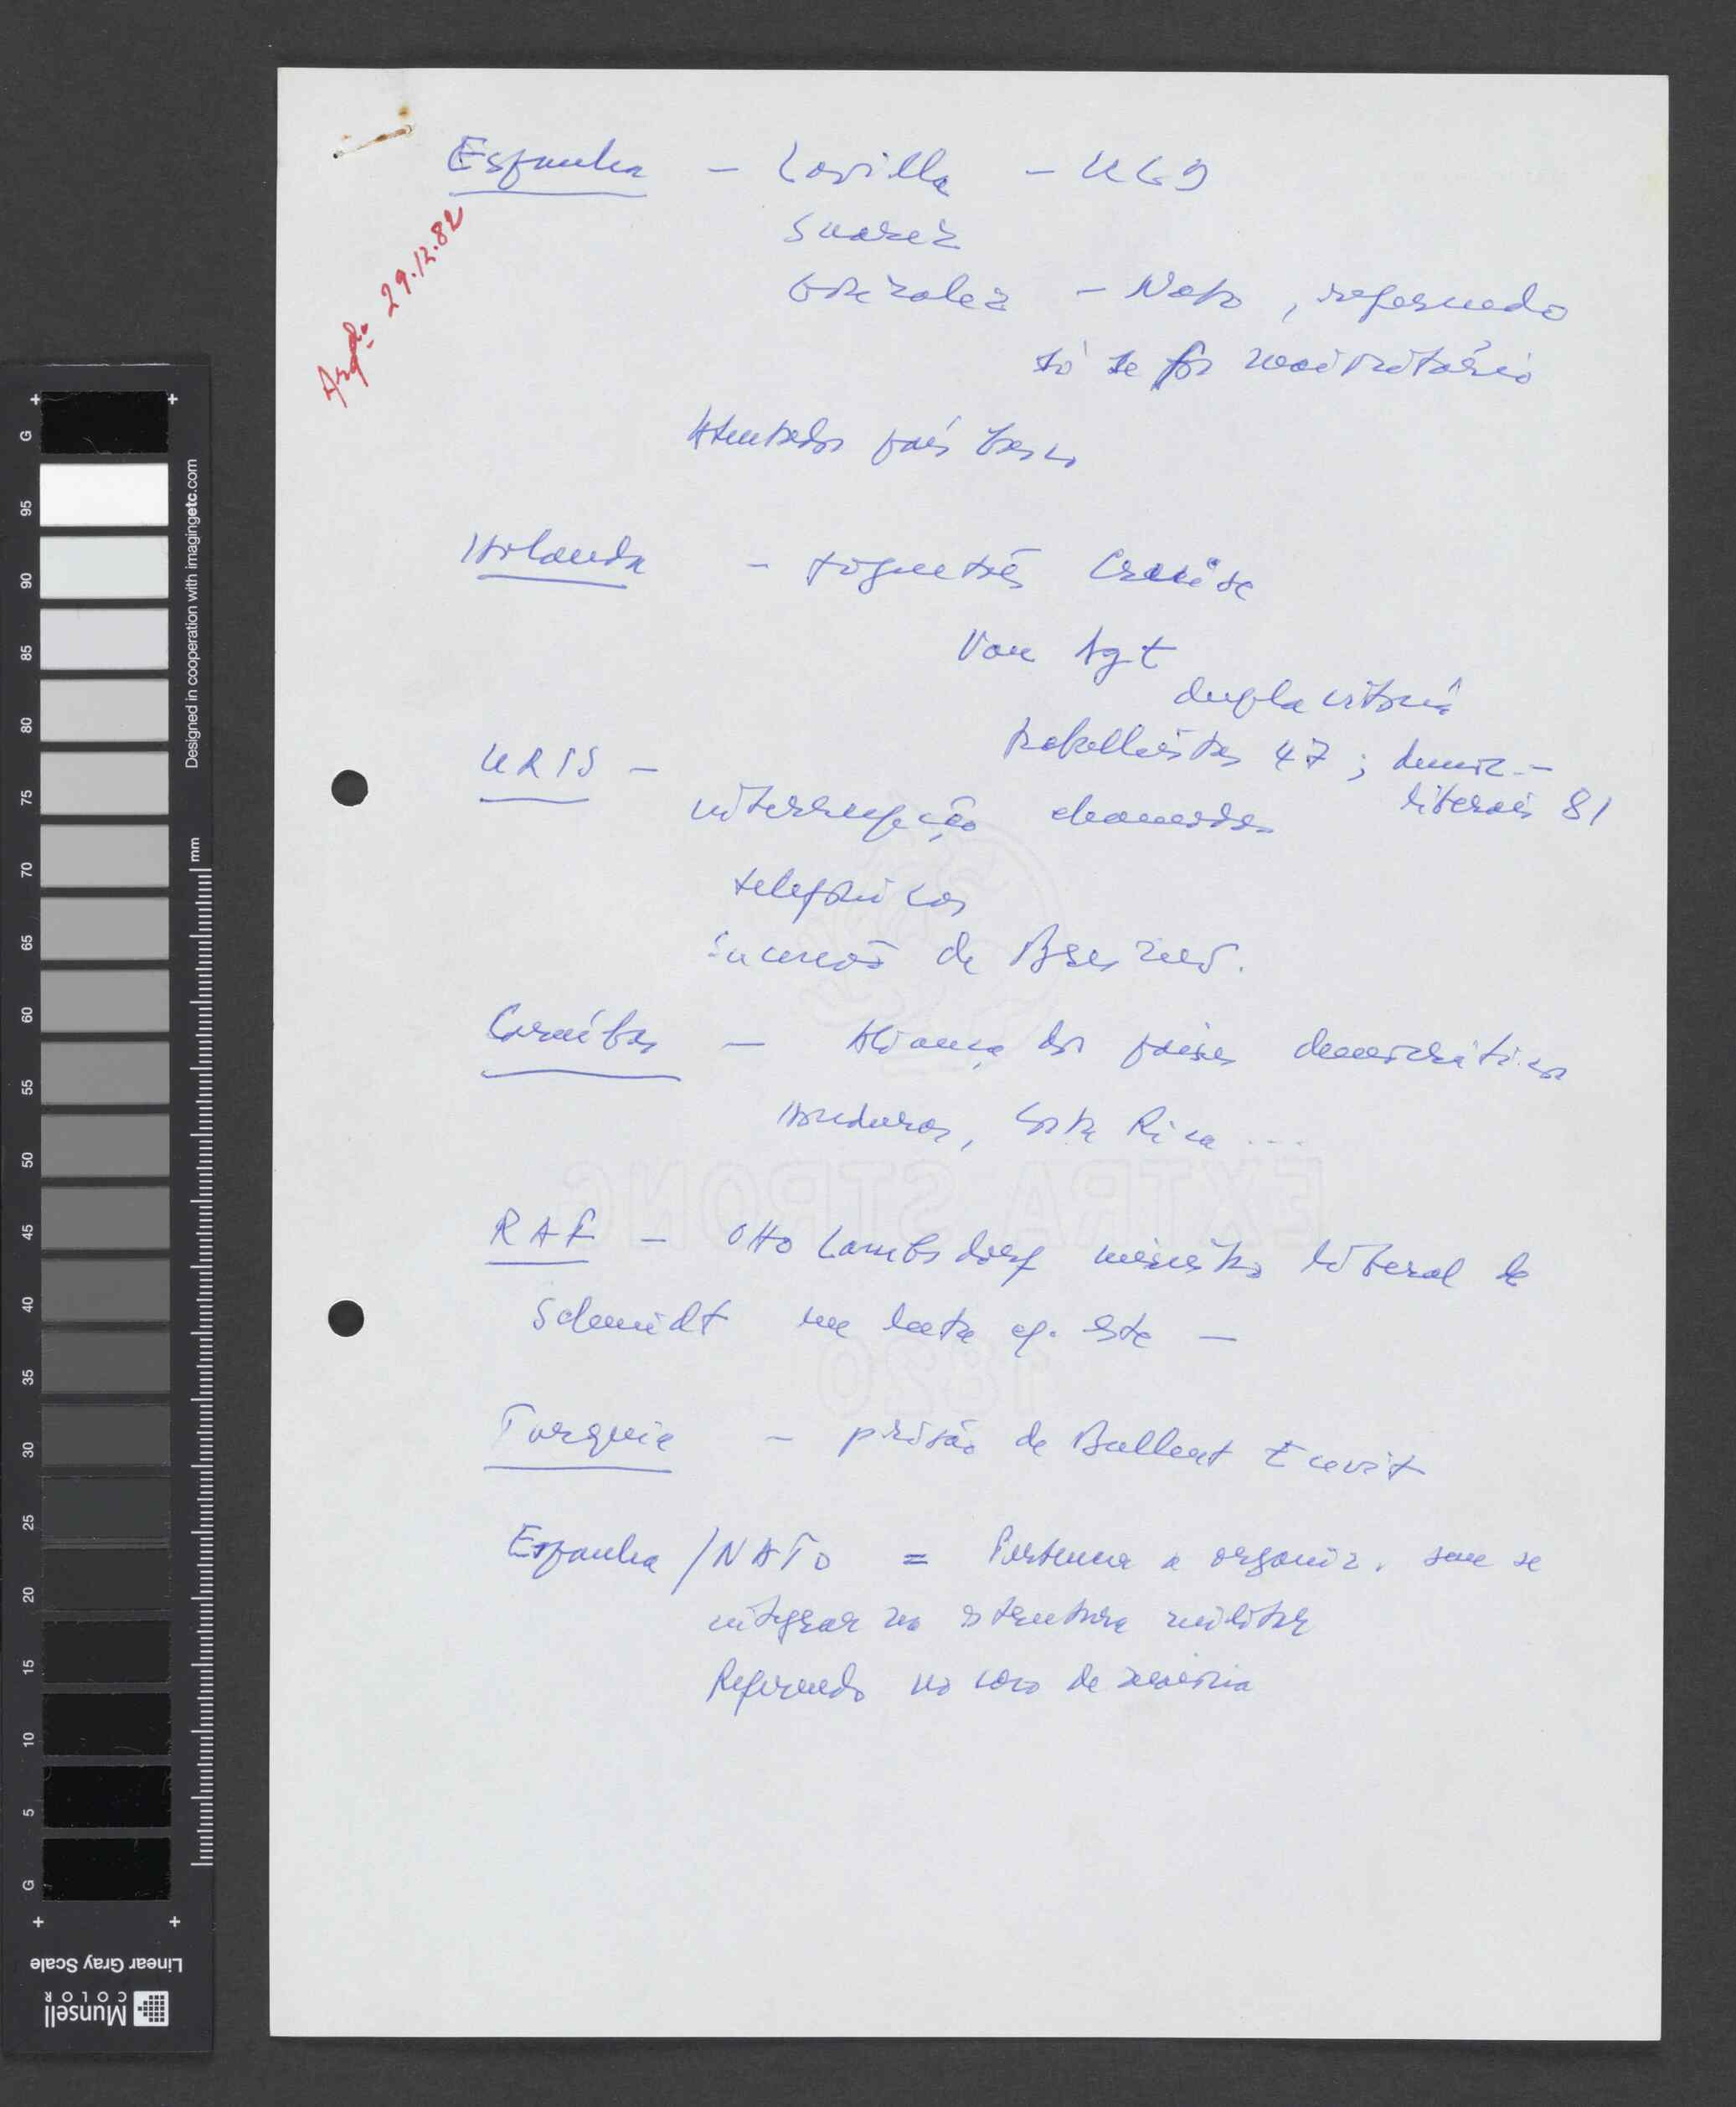 Espanha - Lavilla - UCD
Suarez
Gonzalez - Nato, referendo
só se for maioritário
Atentados país basco
Arqd. 29.12.82
Holanda - foguetões Cruise
Van Agt
dupla vitória
trabalhistas 47; democ.-
liberais 81
URSS -
interrupção chamadas
telefónicas
sucessão de Brejnev.
Caraíbas - Aliança dos países democráticos
Honduras, Costa Rica ...
EXTRA STRONG
RAF - Otto Lambsdorf ministro liberal de
Schmidt me este -
1820
Turquia - prisão de Bullent Ecevit
Espanha / NATO = Pertencer a organiz. sem se
integrar na estrutura militar
Referendo no caso de maioria
G 95 90 85 80 75 70 65 60 55 50 45 40 35 30 25 20 15 10 5 G
mm
Designed in cooperation with imagingetc.com
Linear Gray Scale
Munsell
COLOR